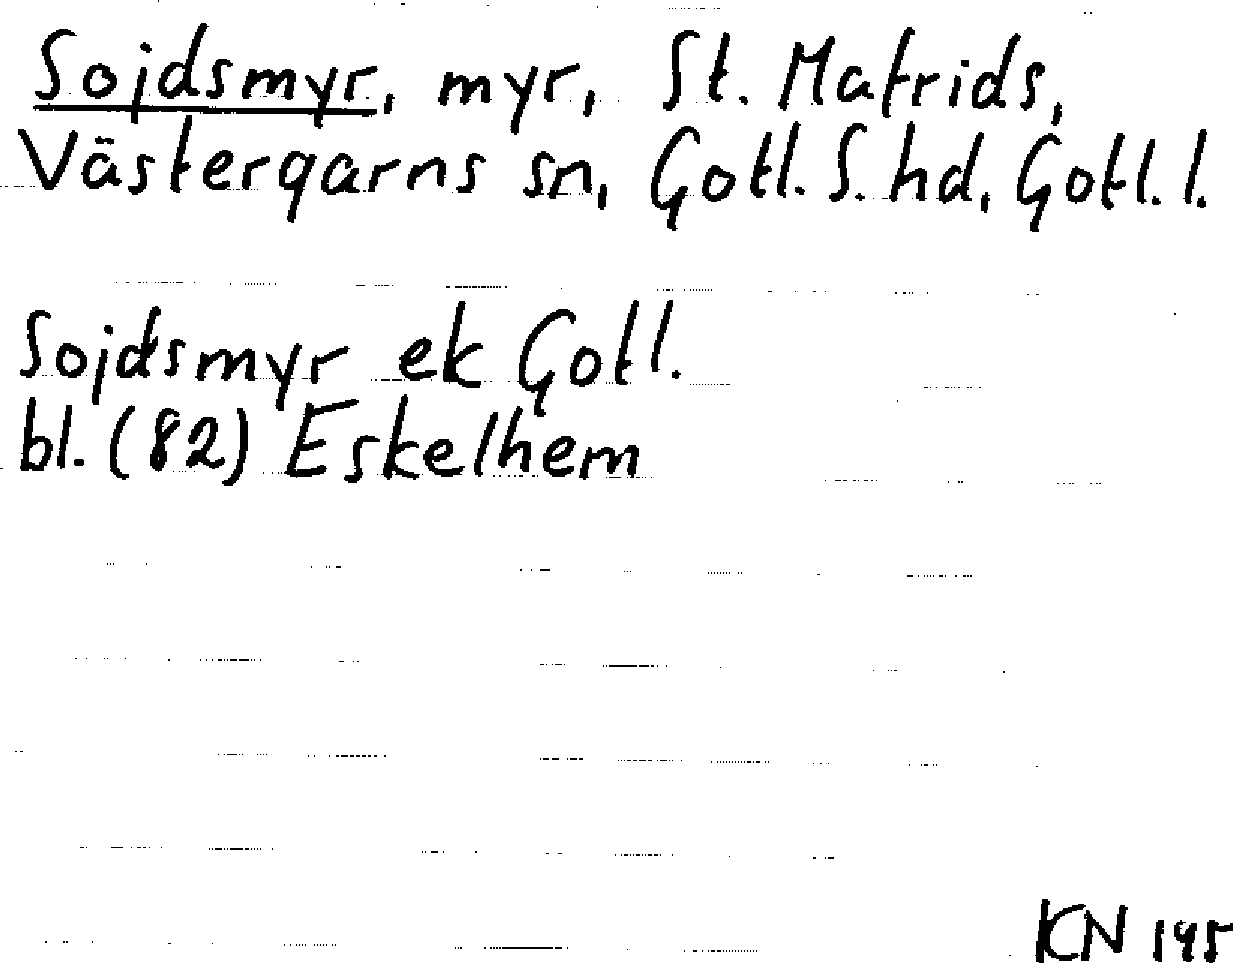 Sojdsmyr, myr, St. Mafrids,
Västergarns sn, Gotl. S. hd, Gotl. l.
Sojdsmyr ek Gotl.
bl. (82) Eskelhem
KN 145